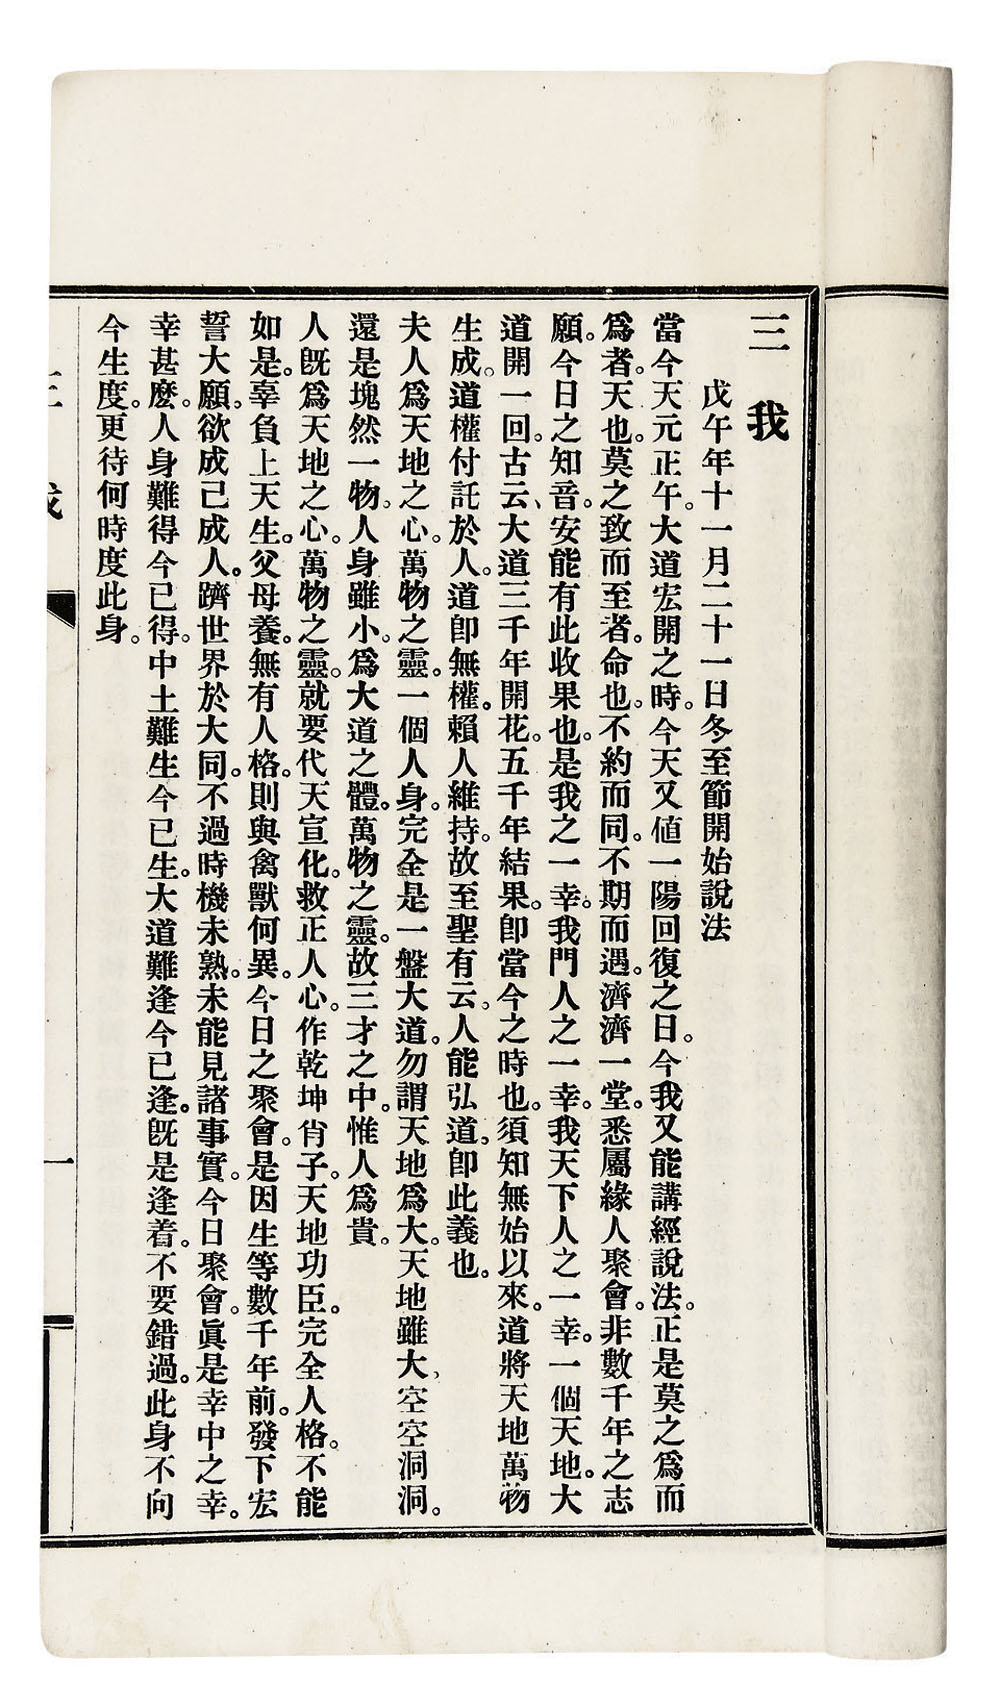 三 我
戊午年十一月二十一日冬至節開始說法
當今天元正午。大道宏開之時。今天又値一陽回復之日。今我又能講經說法。正是莫之爲而
爲者。天也。莫之致而至者。命也。不約而同。不期而遇。濟濟一堂。悉屬緣人聚會。非數千年之志
願。今日之知音。安能有此收果也。是我之一幸。我門人之一幸。我天下人之一幸。一個天地。大
道開一回。古云、大道三千年開花。五千年結果。卽當今之時也。須知無始以來。道將天地萬物
生成。道權付託於人。道卽無權。賴人維持。故至聖有云。人能弘道。卽此義也。
夫人爲天地之心。萬物之靈。一個人身。完全是一盤大道。勿謂天地爲大。天地雖大、空空洞洞。
還是塊然一物。人身雖小。爲大道之體。萬物之靈。故三才之中。惟人爲貴。
人旣爲天地之心。萬物之靈。就要代天宣化。救正人心。作乾坤肖子。天地功臣。完全人格。不能
如是。辜負上天生。父母養。無有人格。則與禽獸何異。今日之聚會。是因生等數千年前。發下宏
誓大願。欲成己成人。躋世界於大同。不過時機未熟。未能見諸事實。今日聚會。眞是幸中之幸。
幸甚麽。人身難得今已得。中土難生今已生。大道難逢今已逢。旣是逢着。不要錯過。此身不向
今生度。更待何時度此身。
一